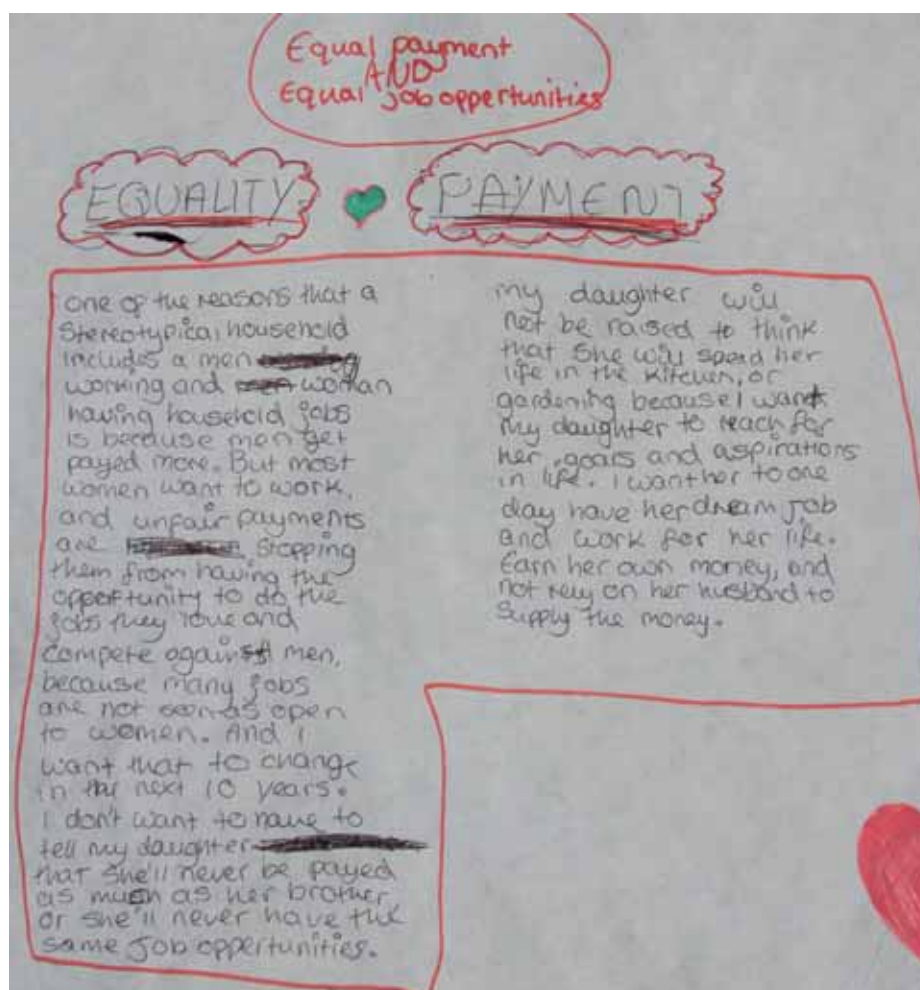 Equal payment
AND
Equal job oppertunities
EQUALITY
PAYMENT
One of the reasons that a
Stereotypical household
includes a men
working and woman
having household jobs
is because men get
payed more. But most
women want to work,
and unfair payments
are stopping
them from having the
oppertunity to do the
jobs they love and
compete against men,
because many jobs
are not as open
to women. And I
want that to change
in the next 10 years.
I don't want to have to
tell my daughter
that she'll never be payed
as much as her brother
or she'll never have the
same job oppertunities.
my daughter will
not be raised to think
that she will spend her
life in the kitchen, or
gardening because I want
my daughter to reach for
her goals and aspirations
in life. I want her to one
day have her dream job
and work for her life.
Earn her own money, and
not rely on her husband to
supply the money.